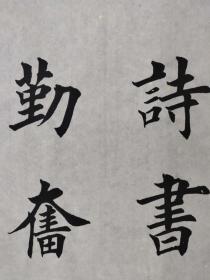 詩書
勤奮